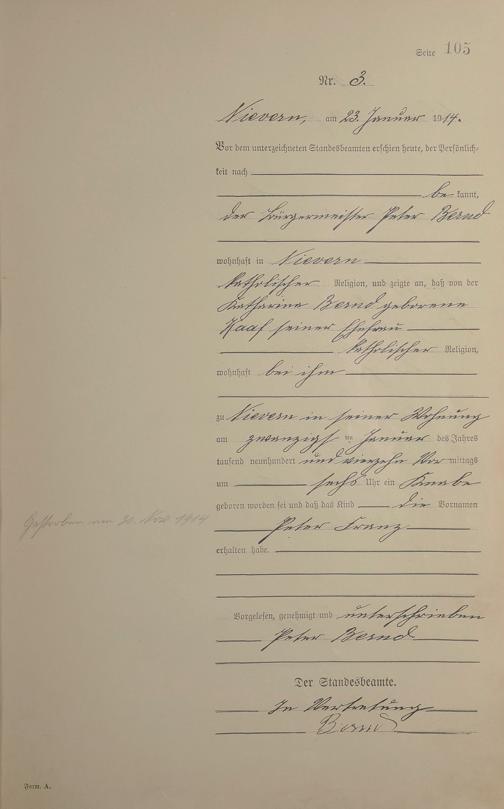 Seite 105
Nr. 3.
Nievern, am 23. Januar 1914.
Vor dem unterzeichneten Standesbeamten erschien heute, der Persönlich-
keit nach
be kannt,
der Bürgermeister Peter Bernd
wohnhaft in Nievern
katholischer Religion, und zeigte an, daß von der
Katharina Bernd geborene
Kaaf seiner Ehefrau
katholischer Religion,
wohnhaft bei ihm
zu Nievern in seiner Wohnung
am zwanzigsten Januar des Jahres
tausend neunhundert und vierzehn Vor mittags
um sechs Uhr ein Knabe
geboren worden sei und daß das Kind die Vornamen
Gestorben am 20. Nov. 1914
Peter Franz
erhalten habe.
Vorgelesen, genehmigt und unterschrieben
Peter Bernd
Der Standesbeamte.
In Vertretung
Bernd
Form. A.